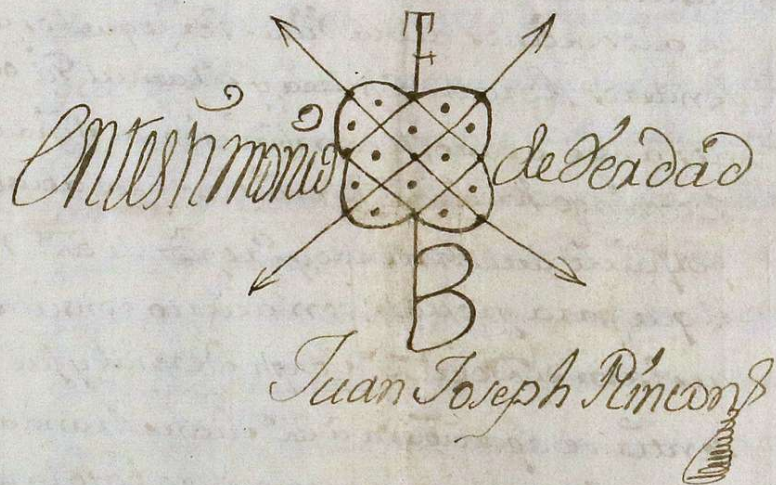 En testimonio de Verdad
B
Juan Joseph Rincon